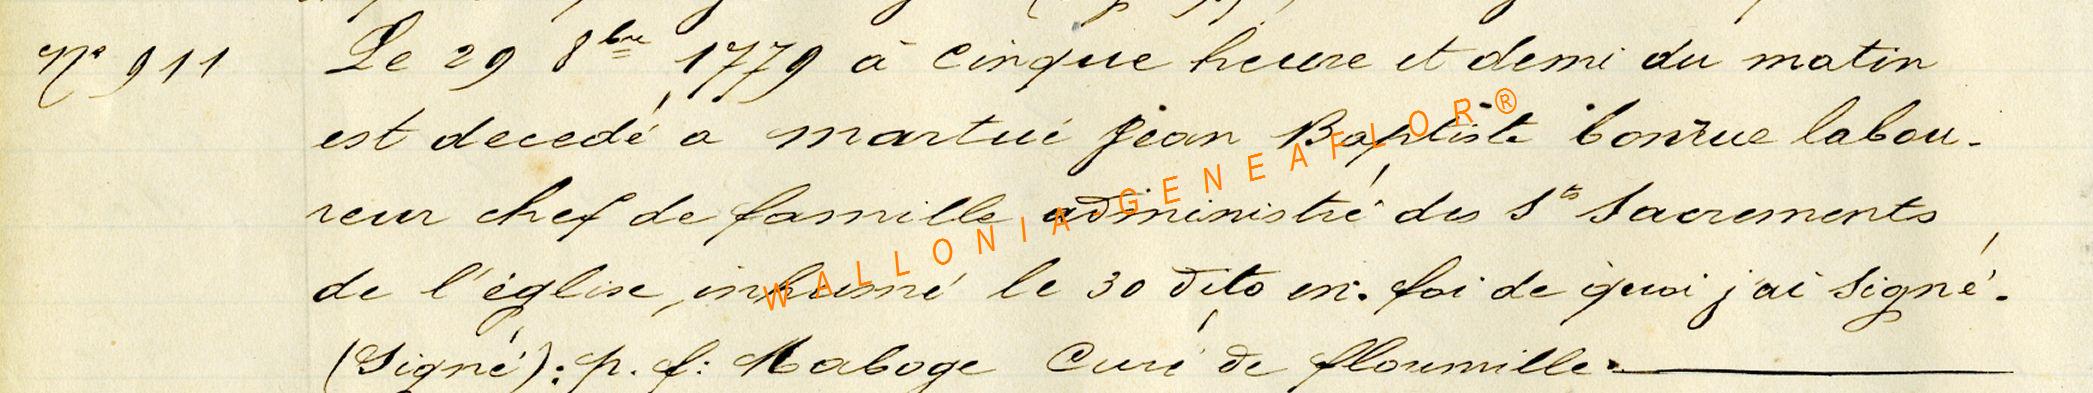 N° 911 Le 29 8bre 1779 à cinque heure et demi du matin
est decedé a martué jean Baptiste bonrue labou-
reur chef de famille administré des Sts Sacrements
de l'église, inhumé le 30 dito en foi de quoi j'ai signé.
(Signé): p. f: Maboge Curé de flornville.
WALLONIA GENEAFLOR®